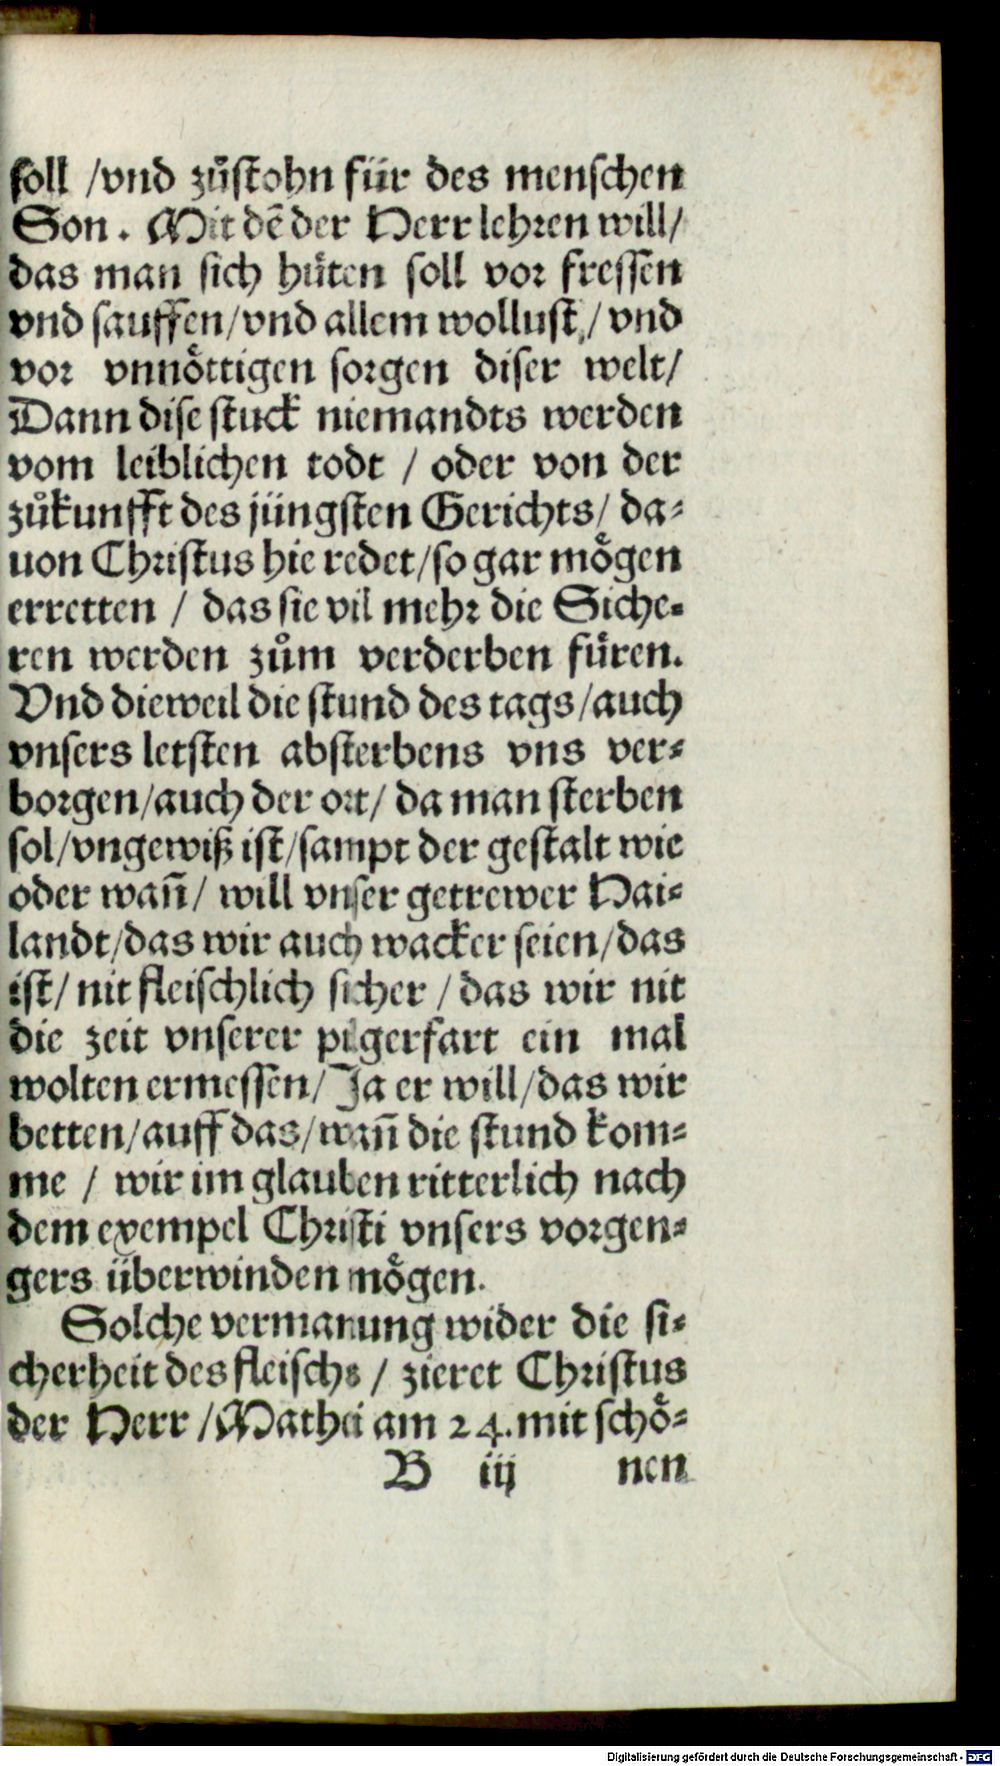 soll /vnd zůstohn für des menschen
Son. Mit dē der Herr lehren will/
das man sich hüten soll vor fressen
vnd sauffen/vnd allem wollust / vnd
vor vnnöttigen sorgen diser welt/
Dann dise stuck niemandts werden
vom leiblichen todt / oder von der
zůkunfft des jüngsten Gerichts/ da-
uon Christus hie redet/so gar mögen
erretten / das sie vil mehr die Siche-
ren werden zům verderben füren.
Vnd dieweil die stund des tags/auch
vnsers letsten absterbens vns ver-
borgen/auch der ort/ da man sterben
sol/vngewiß ist/sampt der gestalt wie
oder wañ/ will vnser getrewer Hai-
landt/das wir auch wacker seien/das
ist/ nit fleischlich sicher / das wir nit
die zeit vnserer pilgerfart ein mal
wolten ermessen/ Ja er will/das wir
betten/auff das/wañ die stund kom-
me / wir im glauben ritterlich nach
dem exempel Christi vnsers vorgen-
gers überwinden mögen.
Solche vermanung wider die si-
cherheit des fleischs / zieret Christus
der Herr /Mathei am 24. mit schö-
B iij nen
Digitalisierung gefördert durch die Deutsche Forschungsgemeinschaft - DFG